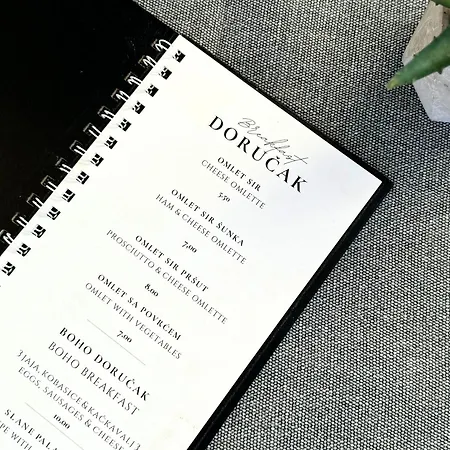 Breakfast
DORUČAK
OMLET SIR
CHEESE OMLETTE
5.50
OMLET SIR ŠUNKA
HAM & CHEESE OMLETTE
7.00
OMLET SIR PRŠUT
PROSCIUTTO & CHEESE OMLETTE
8.00
OMLET SA POVRĆEM
OMLET WITH VEGETABLES
7.00
BOHO DORUČAK
BOHO BREAKFAST
3 JAJA, KOBASICE & KAČKAVALJ
EGGS, SAUSAGES & CHEESE
10.00
SLANE PALA
PE WITH